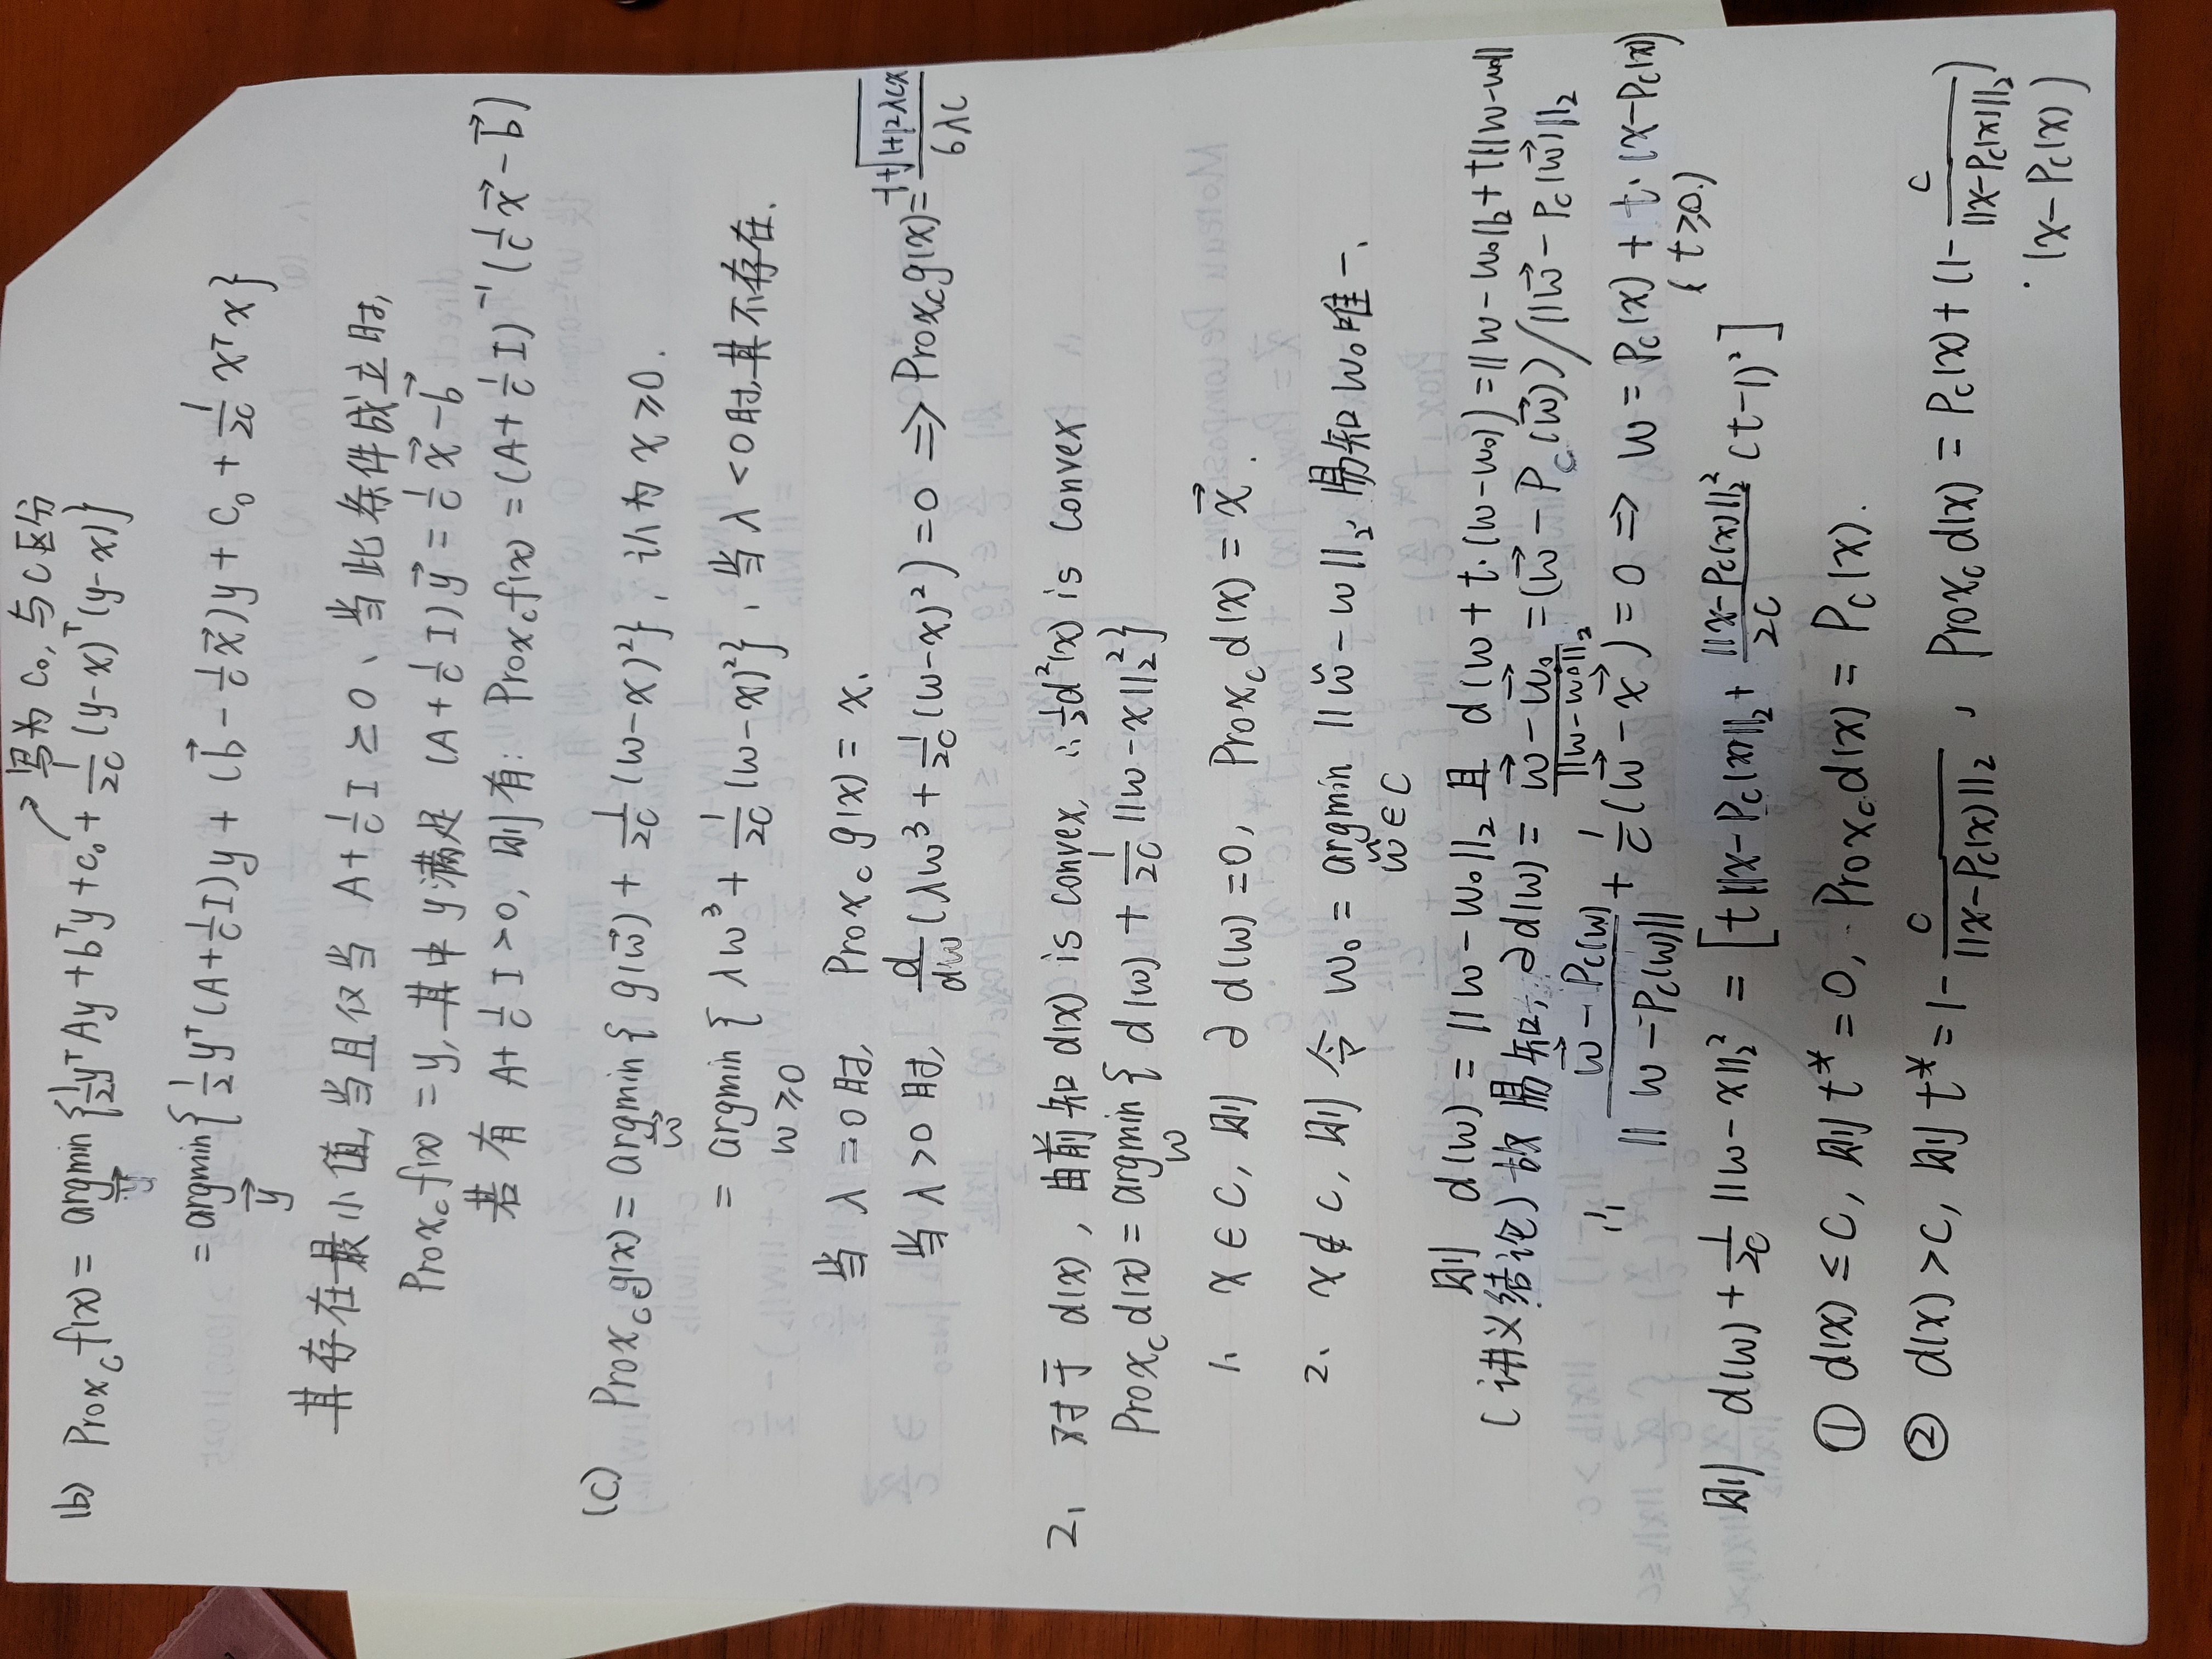 写为 C₀, 与C区分
(b) Prox_c f(x) = argmin_{y⃗} {½yᵀAy + bᵀy + c₀ + 1/2c (y-x)ᵀ(y-x)}
= argmin_{y⃗} { 1/2 yᵀ(A+1/c I)y + (b⃗ - 1/c x⃗)y + C₀ + 1/2c xᵀx}
其存在最小值,当且仅当 A+1/c I ≥ 0、当此条件成立时,
Prox_c f(x) = y, 其中 y 满足 (A+1/c I)y⃗ = 1/c x⃗ - b⃗
若有 A+1/c I >0, 则有: Prox_c f(x) = (A+1/c I)⁻¹(1/c x⃗ - b⃗)
(c) Prox_c g(x) = argmin_{w⃗} { g(w⃗) + 1/2c (w-x)²}, 认为 x ≥ 0.
= argmin_{w≥0} { λw³ + 1/2c (w-x)²}、当 λ<0时,其不存在.
当 λ=0时, Prox_c g(x) = x.
当 λ>0 时, d/dw (λw³ + 1/2c (w-x)²) = 0 ⇒ Prox_c g(x) = (-1+√(1+12λcx))/6λc
2. 对于 d(x), 由前知 d(x) is convex, ∴ ½d²(x) is convex
Prox_c d(x) = argmin_w { d(w) + 1/2c ||w-x||₂²}
1. x ∈ C, 则 ∂d(w) = 0, Prox_c d(x) = x⃗.
2. x ∉ C, 则 令 w₀ = argmin_{w̃∈C} ||w̃-w||₂, 易知 w₀ 唯一、
则 d(w) = ||w-w₀||₂ 且 d(w+t·(w-w₀)) = ||w-w₀||₂ + t||w-w₀||
(讲义结论) 故易知, ∂d(w) = (w⃗-w⃗₀)/||w-w₀||₂ = (w⃗ - P_C(w⃗))/||w⃗ - P_C(w⃗)||₂
∴ (w⃗ - P_C(w))/||w-P_C(w)|| + 1/c (w⃗-x⃗) = 0 ⇒ w = P_C(x) + t·(x-P_C(x))
(t≥0.)
则 d(w) + 1/2c ||w-x||₂² = [t||x-P_C(x)||₂ + ||x-P_C(x)||₂²/2c (t-1)²]
① d(x) ≤ C, 则 t* = 0, Prox_c d(x) = P_C(x).
② d(x) > C, 则 t* = 1 - c/||x-P_C(x)||₂, Prox_c d(x) = P_C(x) + (1 - c/||x-P_C(x)||₂)
·(x-P_C(x))